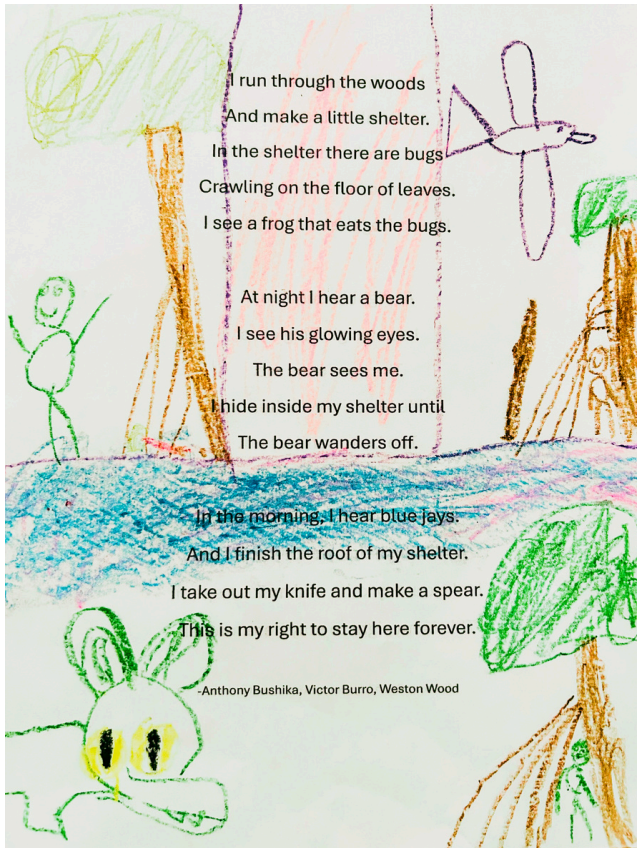 I run through the woods
And make a little shelter.
In the shelter there are bugs
Crawling on the floor of leaves.
I see a frog that eats the bugs.
At night I hear a bear.
I see his glowing eyes.
The bear sees me.
I hide inside my shelter until
The bear wanders off.
In the morning, I hear blue jays.
And I finish the roof of my shelter.
I take out my knife and make a spear.
This is my right to stay here forever.
-Anthony Bushika, Victor Burro, Weston Wood